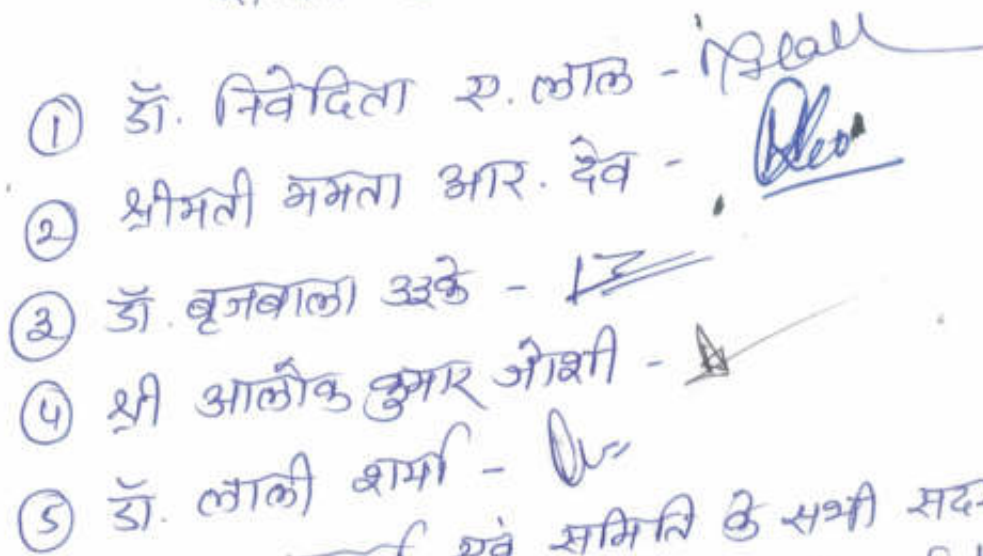 ① डॉ. निवेदिता ए. लाल -
② श्रीमती ममता आर. देव -
③ डॉ. बृजबाला उइके -
④ श्री आलोक कुमार जोशी -
⑤ डॉ. लाली शर्मा -
एवं समिति के सभी